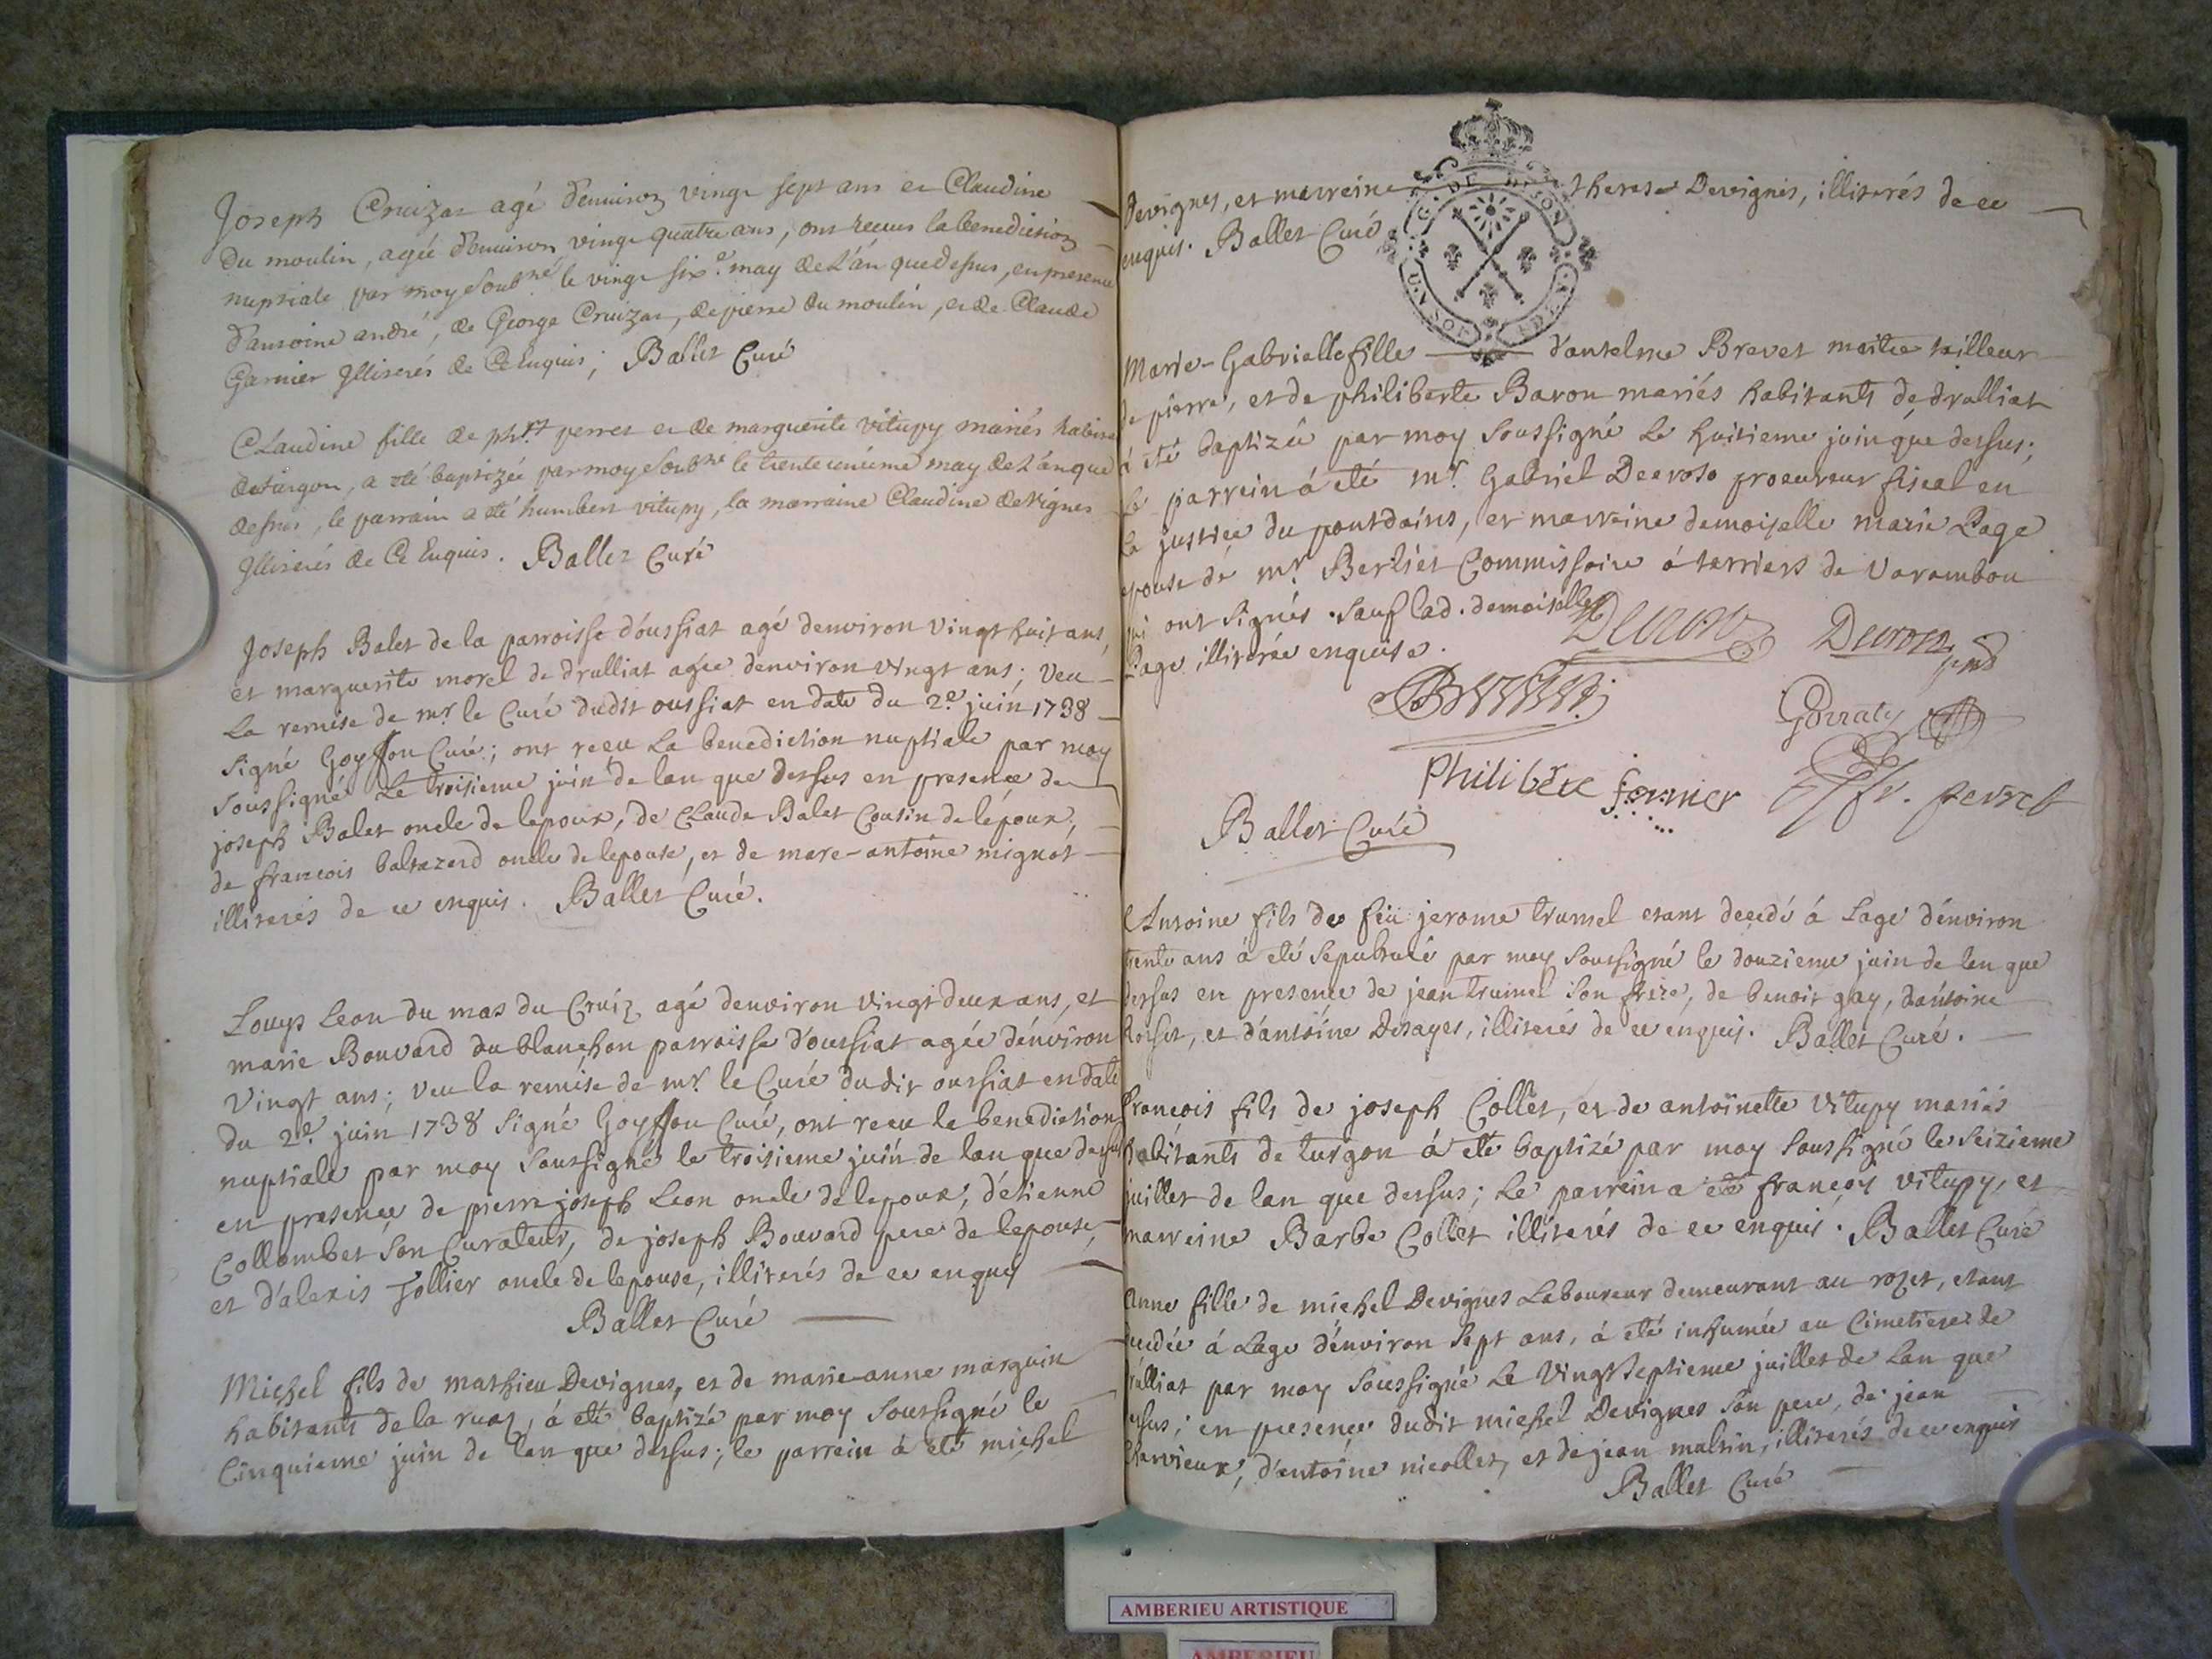 Joseph Cruizat agé d'environ vingt sept ans et Claudine
Du moulin, agée d'environ vingt quatre ans, ont receus la benediction
nuptiale par moy soub.né le vingt six.e may de l'an que dessus, en presence
d'antoine andré, de George Cruizat, de pierre du moulin, et de Claude
Garnier Illiterés de Ce Enquis; Ballet Curé
Claudine fille de perret et de marguerite vitupy mariés
de turgon, a eté baptizée par moy soub.né le trente unieme may de l'an que
dessus, le parrain a eté humbert vitupy, la marraine Claudine devignes
Illiterés de Ce Enquis. Ballet Curé
Joseph Balet de la parroisse d'oussiat agé denviron vingt huit ans,
et marguerite morel de drulliat agée denviron vingt ans; veu
la remise de mr. le Curé dudit oussiat en date du 2.e juin 1738
signé Goyffon Curé; ont reçu la benediction nuptiale par moy
soussigné le troisieme juin de lan que dessus en presence de
joseph Balet oncle de lepoux, de Claude Balet Cousin de lépoux,
de francois baltazard oncle de lepouse, et de marc-antoine mignot
illiterés de ce enquis. Ballet Curé.
Louys Leon du mas du Cruiz agé denviron vingt deux ans, et
marie Bouvard du blanchon parroisse d'oussiat agée dénviron
vingt ans; veu la remise de mr. le Curé dudit oussiat en date
du 2.e juin 1738 signé Goyffon Curé, ont receu la benediction
nuptiale par moy soussigné le troisieme juin de lan que dessus
en presence de pierre joseph Leon oncle de lepoux, d'étienne
Collombet son Curateur, de joseph Bouvard pere de lepouse,
et d'alexis Jollier oncle de lepouse, illiterés de ce enquis
Ballet Curé
Michel fils de mathieu Devignes, et de marie-anne marguin
habitants de la ruaz, á eté baptizé par moy soussigné le
Cinquieme juin de lan que dessus; le parrein á eté michel
Devignes, et marreine therese Devignes, illiterés de ce
enquis. Ballet Curé
Marie-Gabrielle fille d'antelme Brevet maitre tailleur
de pierre, et de philiberte Baron mariés habitants de drulliat
á eté baptizée par moy soussigné le huitieme juin que dessus;
le parrein á eté mr. Gabriel Decroso procureur fiscal en
la justice du pontdains, et marreine demoiselle marie Page
epouse de mr. Berliet Commissaire á terriers de Varambon
qui ont signés. sauf lad. demoiselle
Page illiterée enquise.
Gorraty
Philibert fornier perret
Ballet Curé
Antoine fils de feu jerome trumel etant decedé á lage dénviron
trente ans á eté sepulturé par moy soussigné le douzieme juin de lan que
dessus en presence de jean trumel son frere, de benoit gay, dantoine
et d'antoine Desages, illiterés de ce enquis. Ballet Curé.
François fils de joseph Collet, et de antoinette vitupy mariés
habitants de turgon á eté baptizé par moy soussigné le seizieme
juillet de lan que dessus; le parrein a eté françois vitupy, et
marreine Barbe Collet illiterés de ce enquis. Ballet Curé
Anne fille de michel Devignes Laboureur demeurant au rozet, etant
decedée á Lage dénviron sept ans, á eté inhumée au Cimetiere de
drulliat par moy soussigné le vingt septieme juillet de lan que
dessus; en presence dudit michel Devignes son pere, de jean
Charvieux, d'antoine nicollet, et de jean multin, illiterés de ce enquis
Ballet Curé
AMBERIEU ARTISTIQUE
AMBERIEU